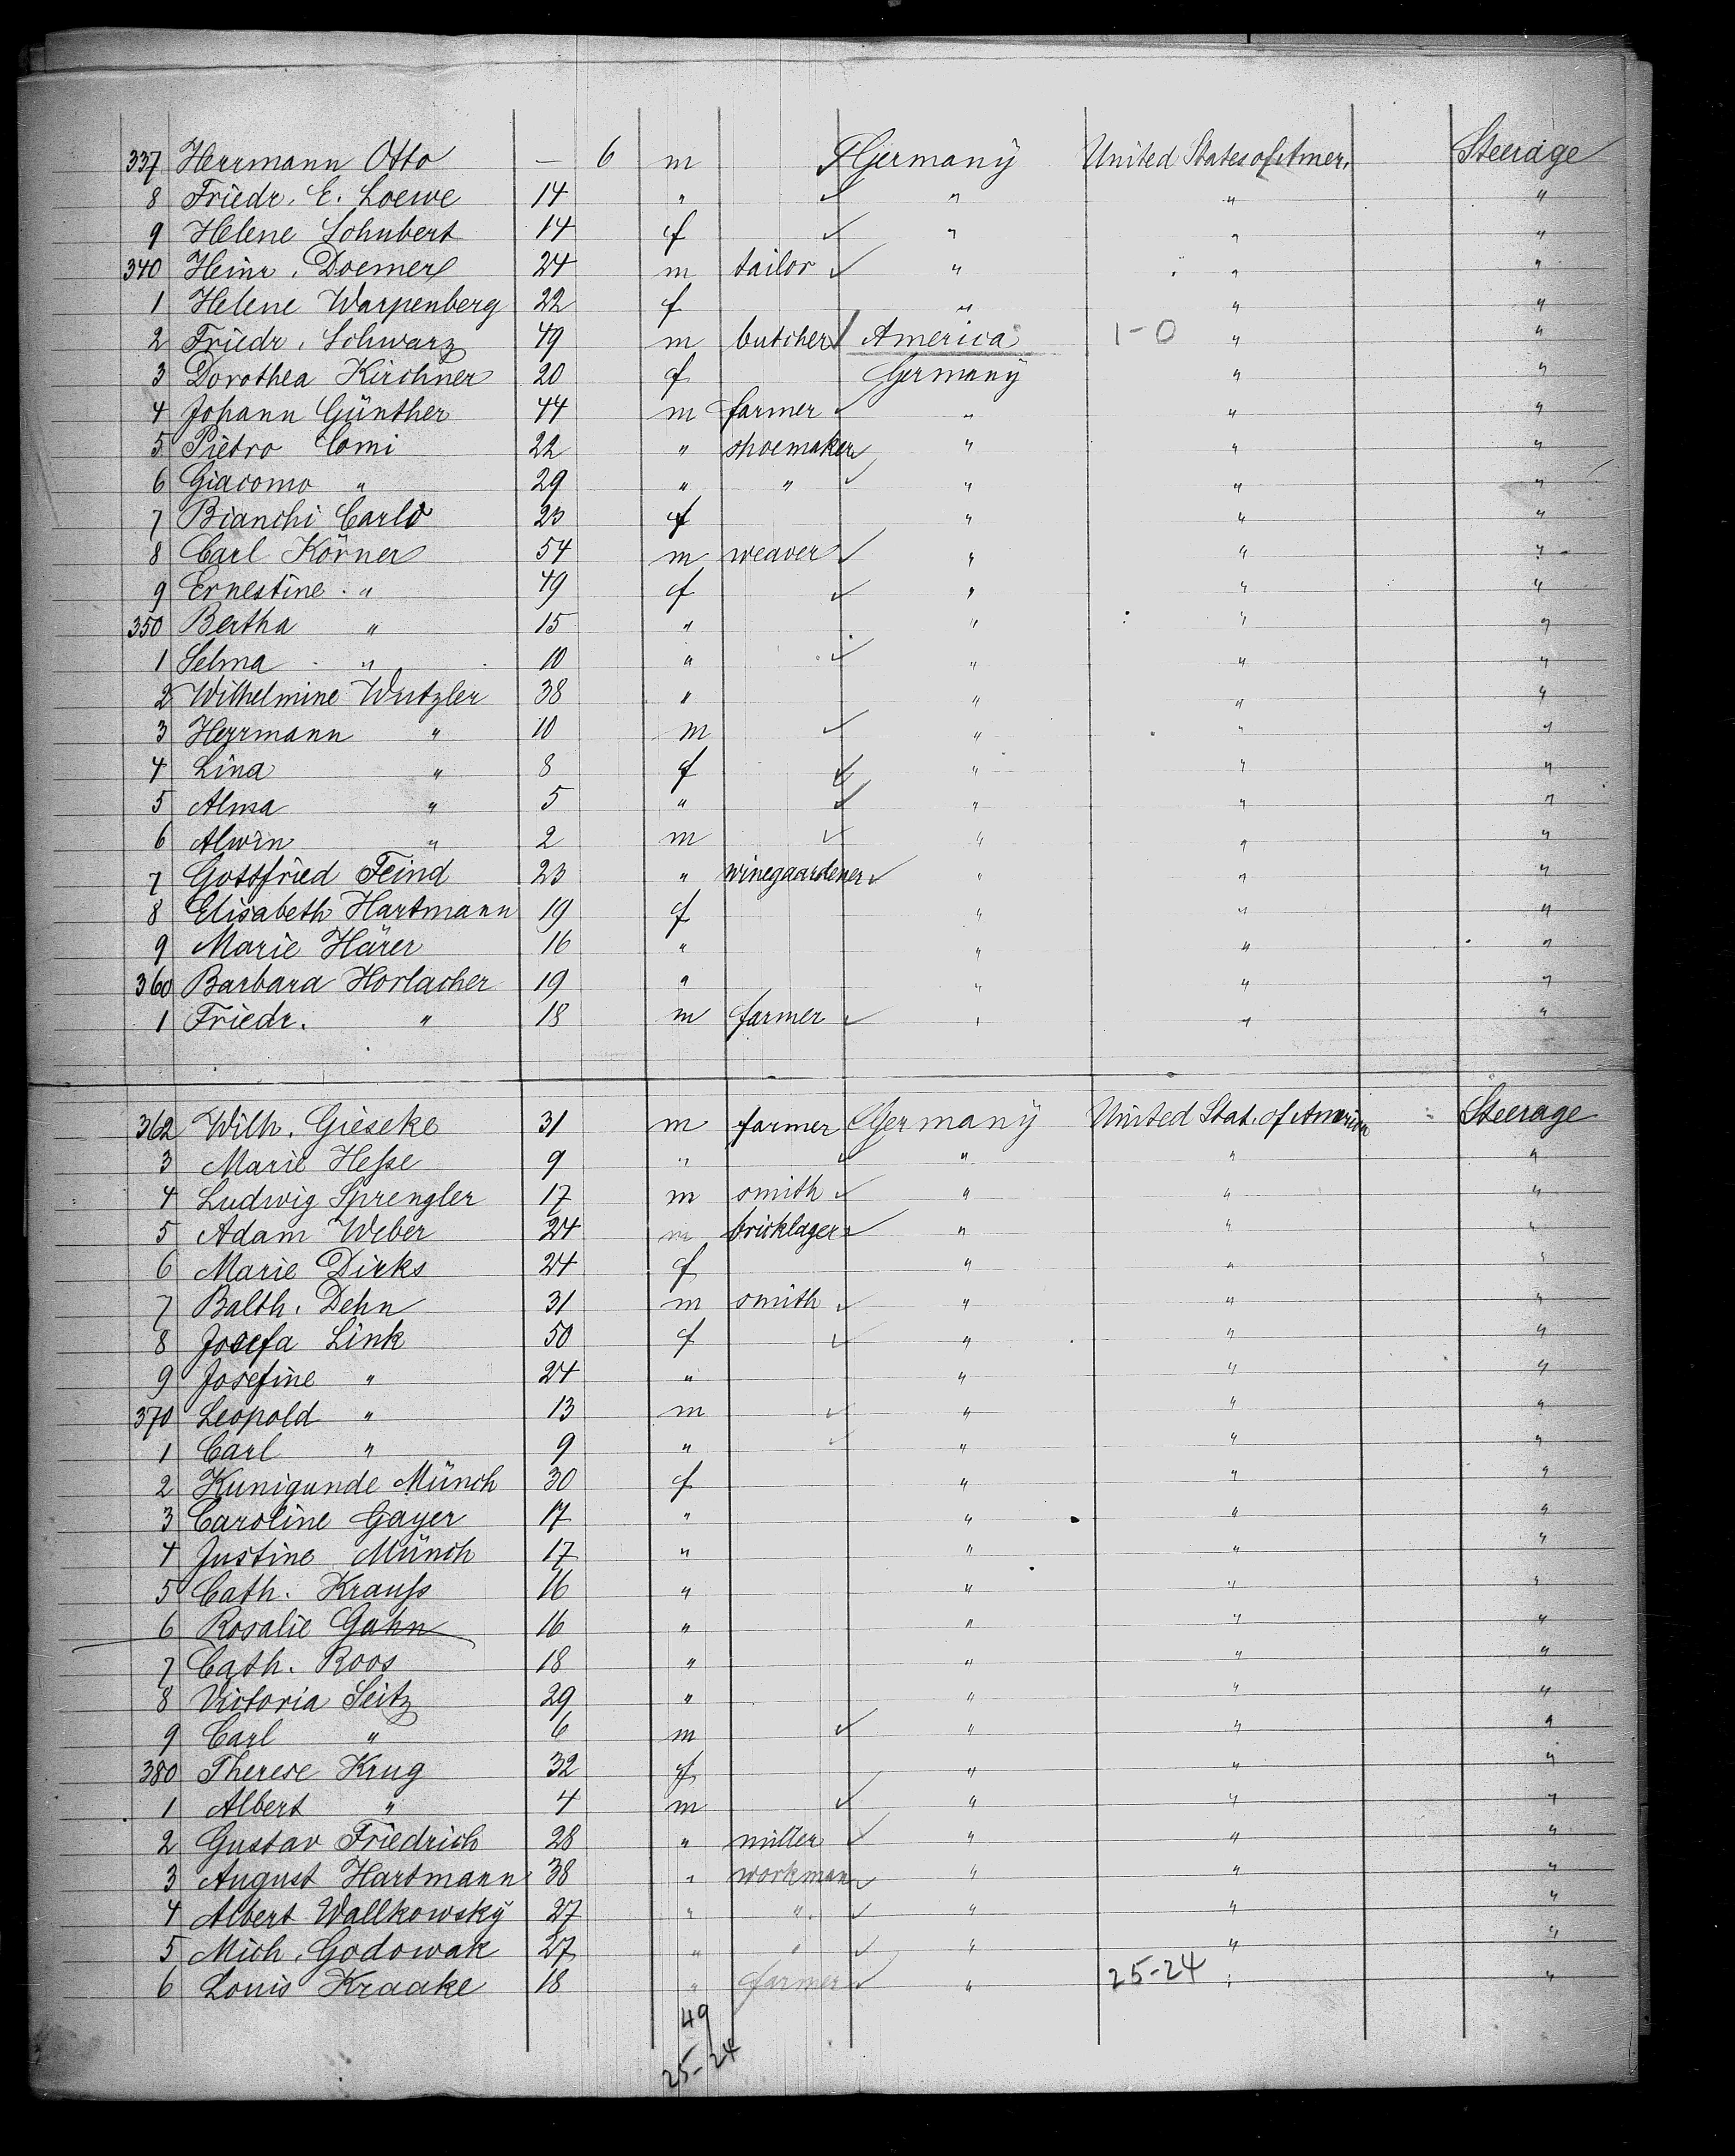 337 Herrmann Otto — 6 m Germany United States of Amer. Steerage
8 Friedr. E. Loewe 14 " " " "
9 Helene Schubert 14 f " " "
340 Heinr. Doemer 24 m tailor " " "
1 Helene Warpenberg 22 f " " "
2 Friedr. Schwarz 49 m butcher America 1-0 " "
3 Dorothea Kirchner 20 f Germany " "
4 Johann Günther 44 m farmer " " "
5 Pietro Comi 22 " shoemaker " " "
6 Giacomo " 29 " " " " "
7 Bianchi Carlo 23 f " " "
8 Carl Körner 54 m weaver " " "
9 Ernestine " 49 f " " "
350 Bertha " 15 " " " "
1 Selma " 10 " " " "
2 Wilhelmine Wutzler 38 " " " "
3 Herrmann " 10 m " " "
4 Lina " 8 f " " "
5 Alma " 5 " " " "
6 Alwin " 2 m " " "
7 Gottfried Feind 23 " winegaardener " " "
8 Elisabeth Hartmann 19 f " " "
9 Marie Härer 16 " " " "
360 Barbara Horlacher 19 " " " "
1 Friedr. " 18 m farmer " " "
362 Wilh. Gieseke 31 m farmer Germany United Stat. of America Steerage
3 Marie Hesse 9 " " " "
4 Ludwig Sprengler 17 m smith " " "
5 Adam Weber 24 m bricklager " " "
6 Marie Dirks 24 f " " "
7 Balth. Dehn 31 m smith " " "
8 Josefa Link 50 f " " "
9 Josefine " 24 " " " "
370 Leopold " 13 m " " "
1 Carl " 9 " " " "
2 Kunigunde Münch 30 f " " "
3 Caroline Gayer 17 " " " "
4 Justine Münch 17 " " " "
5 Cath. Krauss 16 " " " "
6 Rosalie Gahn 16 " " " "
7 Cath. Roos 18 " " " "
8 Victoria Seitz 29 " " " "
9 Carl " 6 m " " "
380 Therese Krug 32 f " " "
1 Albert " 4 m " " "
2 Gustav Friedrich 28 " miller " " "
3 August Hartmann 38 " workman " " "
4 Albert Wallkowsky 27 " " " " "
5 Mich. Godowak 27 " " " " "
6 Louis Kraake 18 " farmer " 25-24 " "
49
25-24